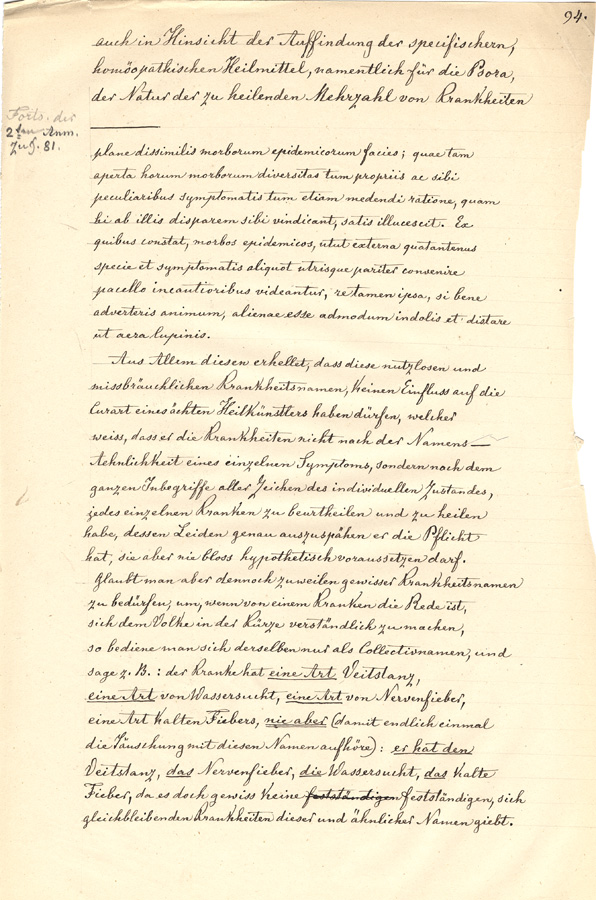 94.
auch in Hinsicht der Auffindung der specifischern,
homöopathischen Heilmittel, namentlich für die Psora,
der Natur der zu heilenden Mehrzahl von Krankheiten
Forts. der
2ten Anm.
zu §. 81.
plane dissimilis morborum epidemicorum facies; quae tam
aperta horum morborum diversitas tum propriis ac sibi
peculiaribus symptomatis tum etiam medendi ratione, quam
hi ab illis disparem sibi vindicant, satis illucescit. Ex
quibus constat, morbos epidemicos, utut externa quatantenus
specie et symptomatis aliquot utrisque pariter convenire
pacello incautioribus videantur, re tamen ipsa, si bene
adverteris animum, alienae esse admodum indolis et distare
ut aera lupinis.
Aus Allem diesen erhellet, dass diese nutzlosen und
missbräuchlichen Krankheitsnamen, keinen Einfluss auf die
Curart eines ächten Heilkünstlers haben dürfen, welcher
weiss, dass er die Krankheiten nicht nach der Namens-
Aehnlichkeit eines einzelnen Symptoms, sondern nach dem
ganzen Inbegriffe aller Zeichen des individuellen Zustandes,
jedes einzelnen Kranken zu beurtheilen und zu heilen
habe, dessen Leiden genau auszuspähen er die Pflicht
hat, sie aber nie bloss hypothetisch voraussetzen darf.
Glaubt man aber dennoch zuweilen gewisser Krankheitsnamen
zu bedürfen, um, wenn von einem Kranken die Rede ist,
sich dem Volke in der Kürze verständlich zu machen,
so bediene man sich derselben nur als Collectivnamen, und
sage z. B.: der Kranke hat eine Art Veitstanz,
eine Art von Wassersucht, eine Art von Nervenfieber,
eine Art kalten Fiebers, nie aber (damit endlich einmal
die Täuschung mit diesen Namen aufhöre): er hat den
Veitstanz, das Nervenfieber, die Wassersucht, das kalte
Fieber, da es doch gewiss keine festständigen festständigen, sich
gleichbleibenden Krankheiten dieser und ähnlicher Namen giebt.